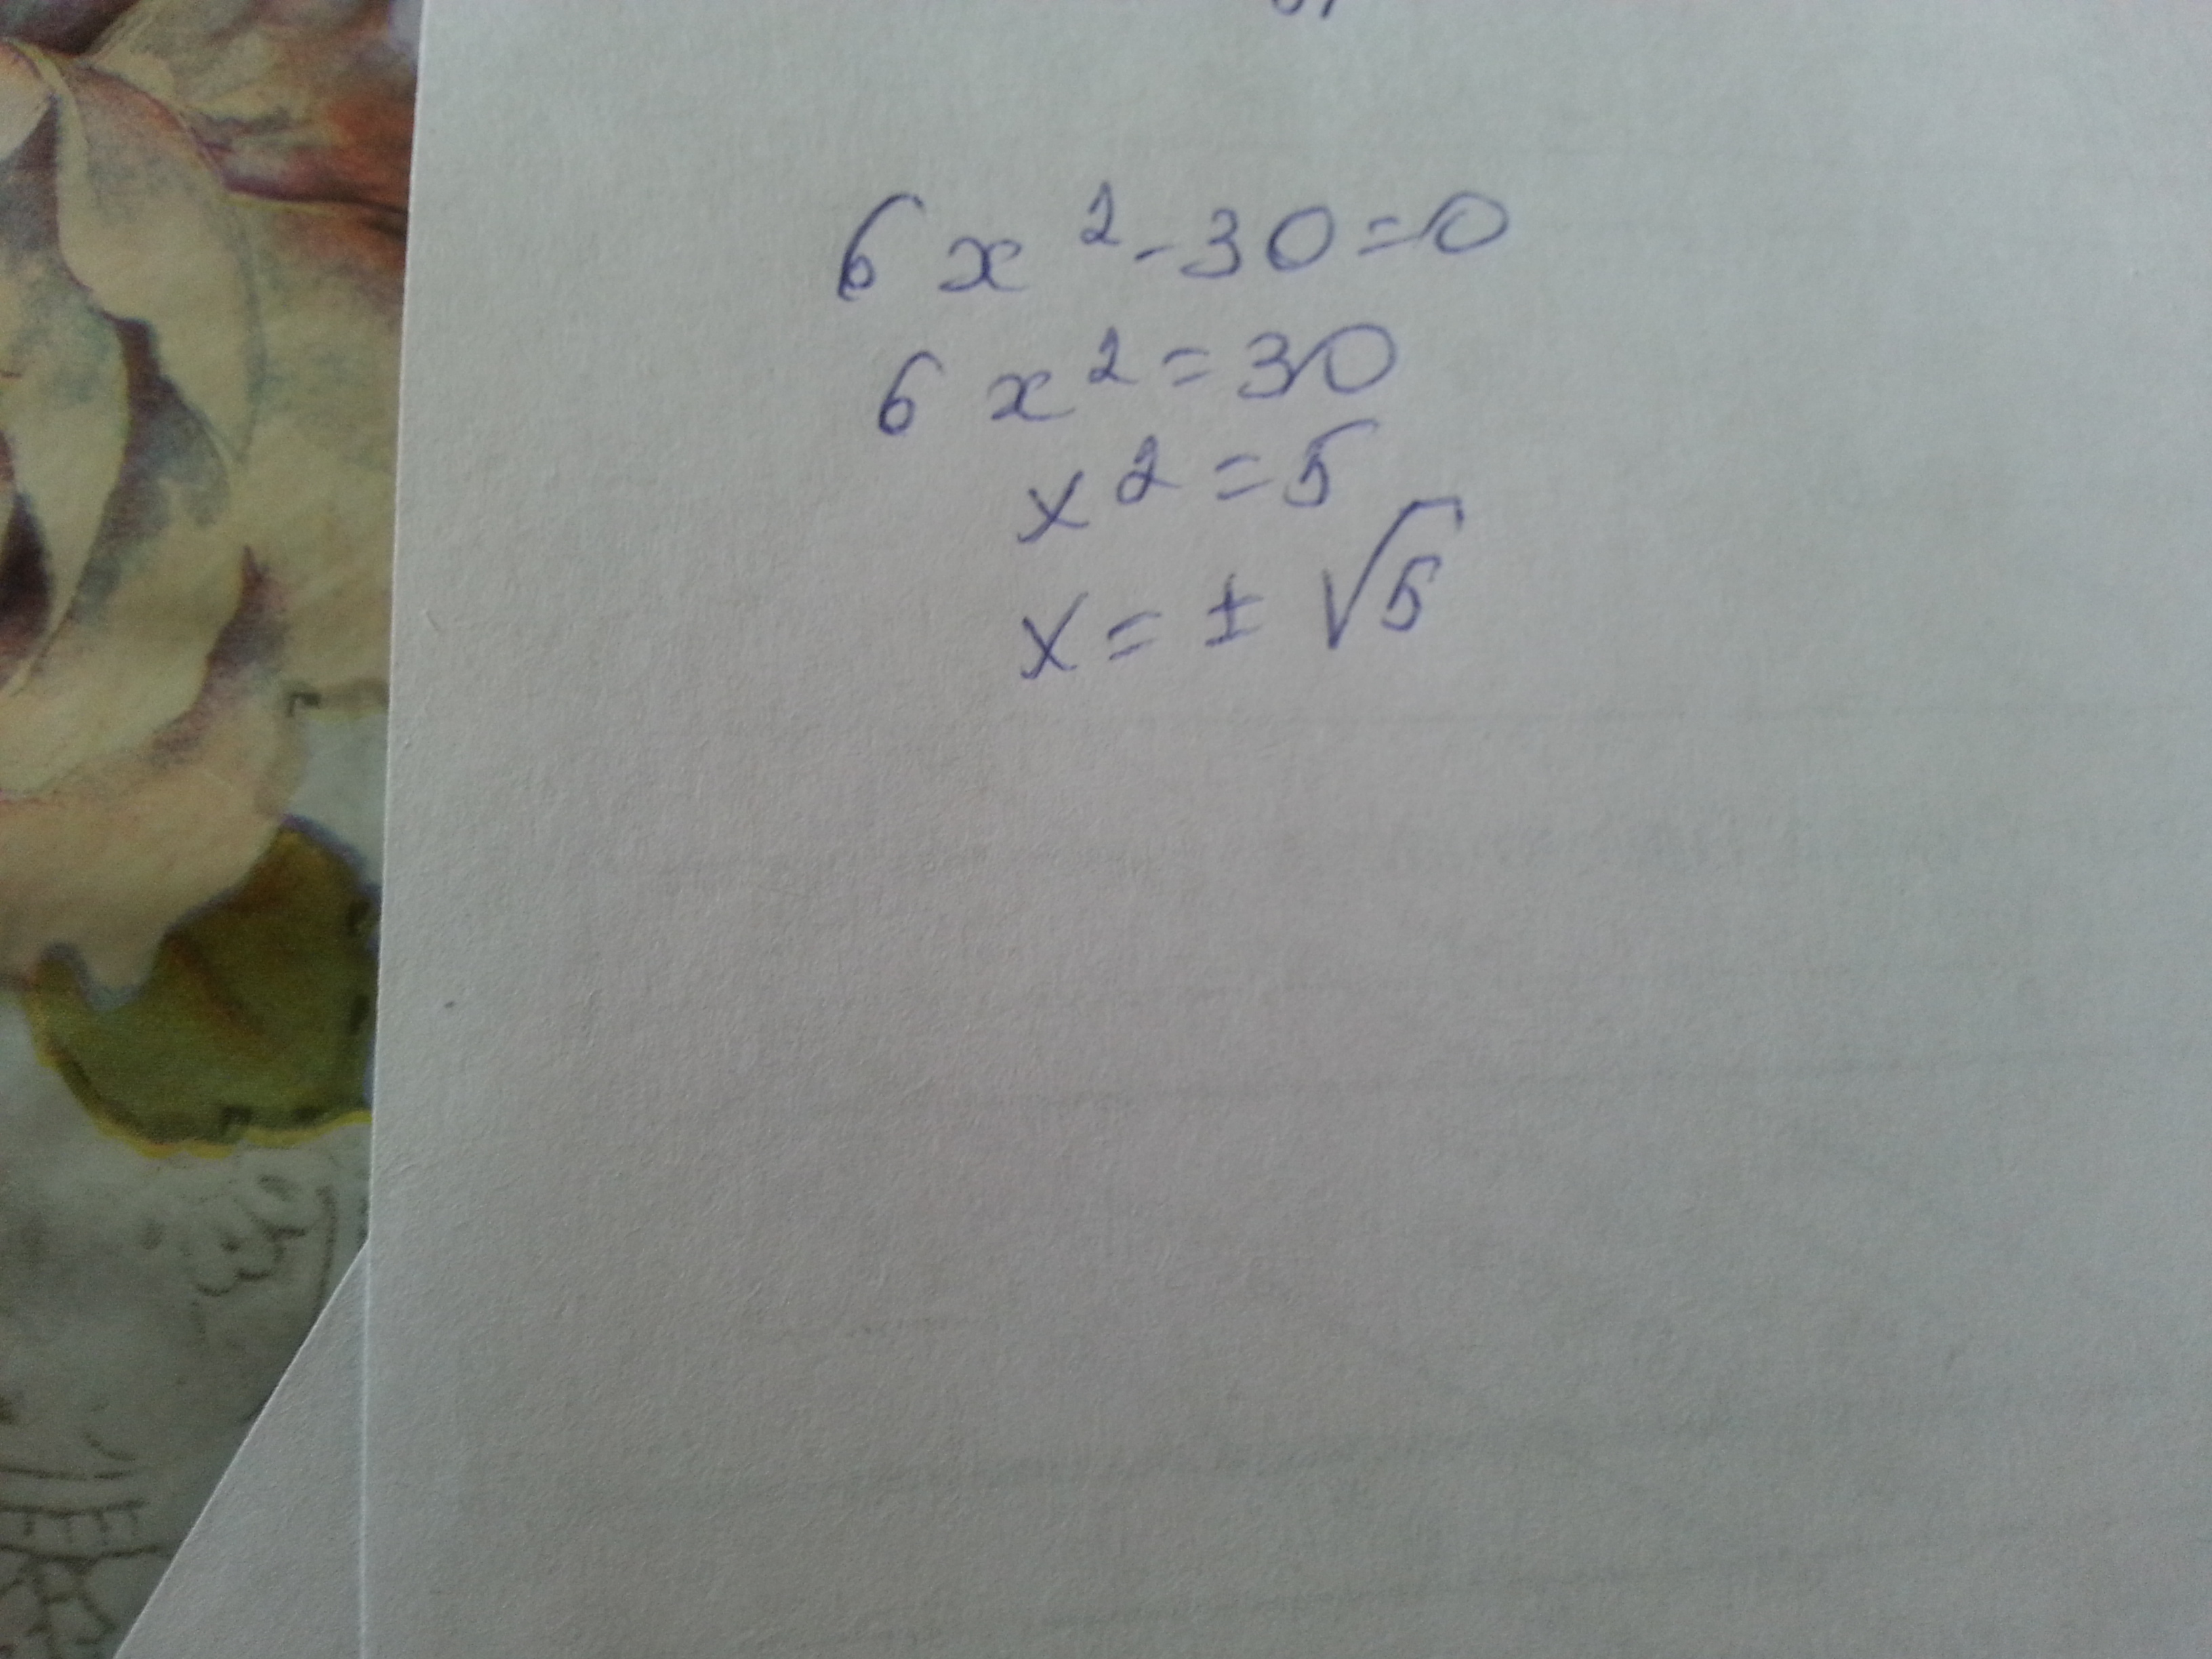 6x² - 30 = 0
6x² = 30
x² = 5
x = ± √5